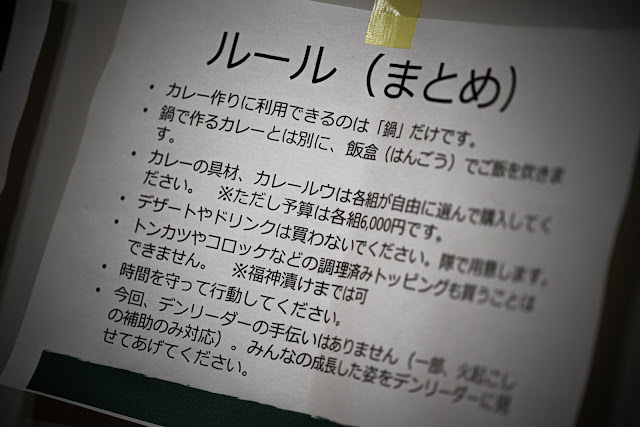 ルール（まとめ）
• カレー作りに利用できるのは「鍋」だけです。
• 鍋で作るカレーとは別に、飯盒（はんごう）でご飯を炊きま
す。
• カレーの具材、カレールウは各組が自由に選んで購入してく
ださい。　※ただし予算は各組6,000円です。
• デザートやドリンクは買わないでください。隊で用意します。
• トンカツやコロッケなどの調理済みトッピングも買うことは
できません。　※福神漬けまでは可
• 時間を守って行動してください。
• 今回、デンリーダーの手伝いはありません（一部、火起こし
の補助のみ対応）。みんなの成長した姿をデンリーダーに見
せてあげてください。